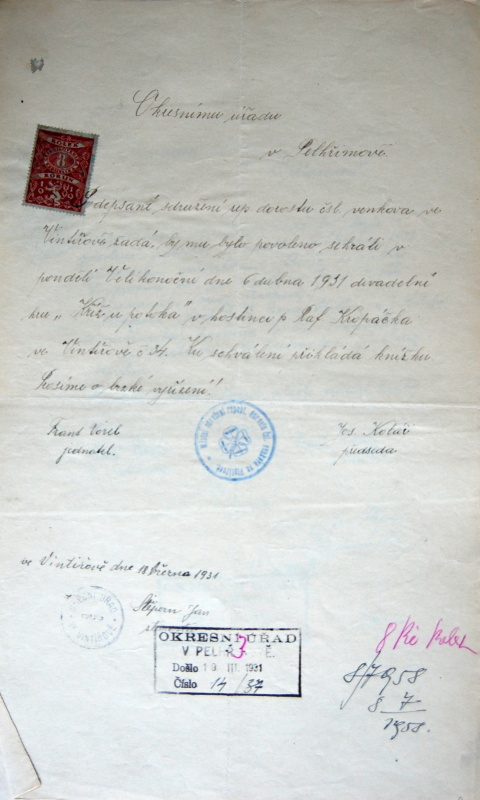 Okresnímu úřadu
v Pelhřimově.
KOLEK
8
KORUN
Podepsané sdružení rep. dorostu čsl. venkova ve
Vintířově žádá, by mu bylo povoleno sehráti v
pondělí Velikonoční dne 6 dubna 1931 divadelní
hru „Kříž u potoka" v hostinci p. Raf. Kropáčka
ve Vintířově č 34. Ku schválení přikládá knížku.
Prosíme o brzké vyřízení!
Jos. Kolář
jednatel.
předseda
ve Vintířově dne 18 března 1931
Štěpán Jan
OKRESNÍ ÚŘAD
V PELHŘIMOVĚ.
3
Došlo 19. III. 1931
Číslo 14/37
8 Kč kolek
8/7958
8 7
1958.